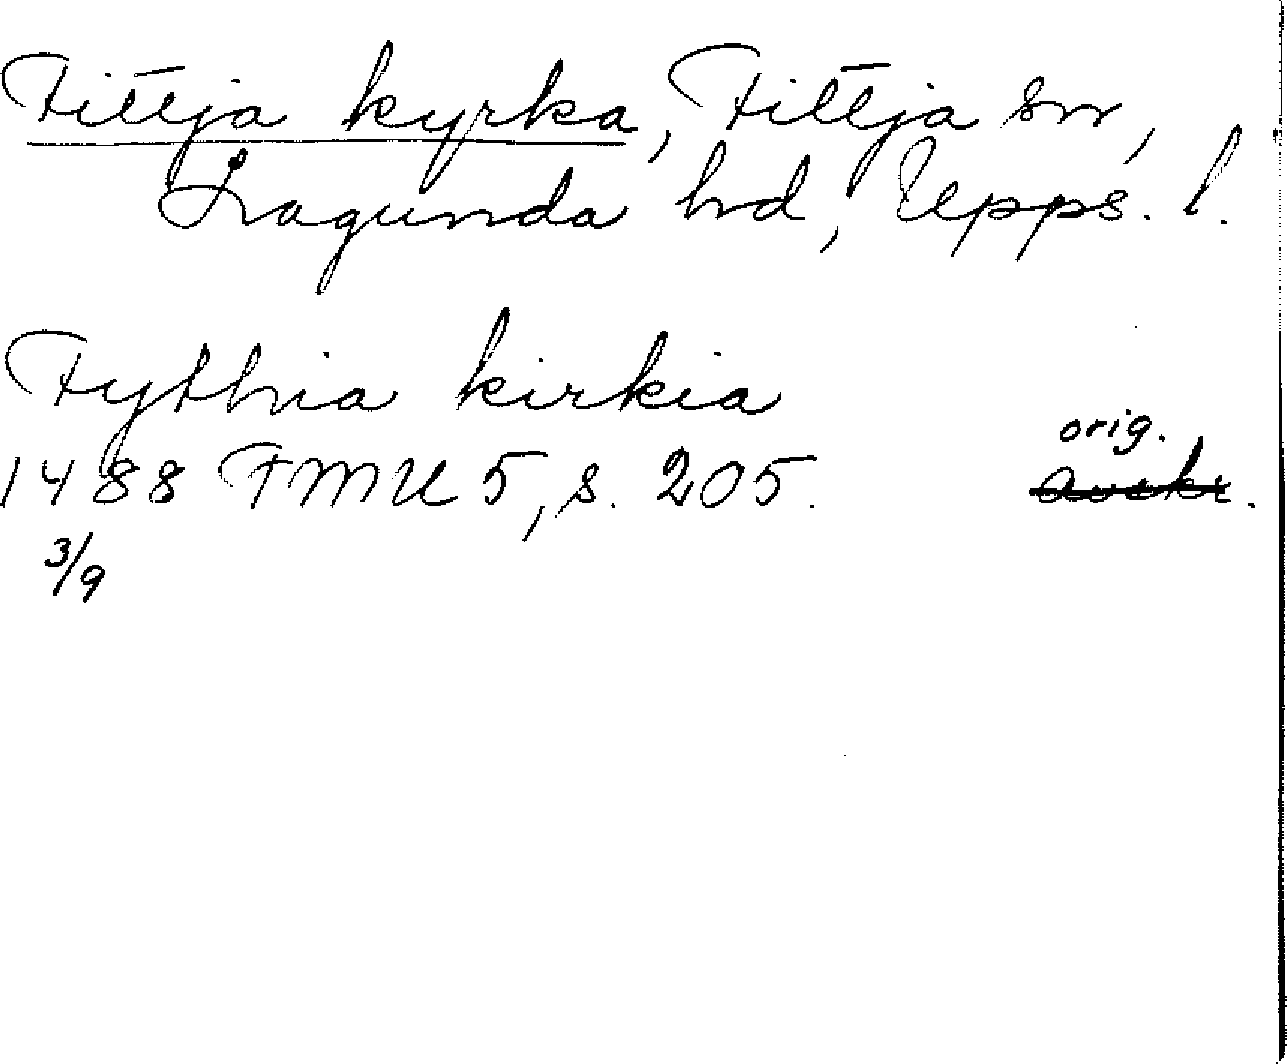 Fittja kyrka, Fittja sn,
Lagunda hd, Upps. l.
Fythia kirkia
orig.
1488 FMU 5, s. 205. avskr.
3/9